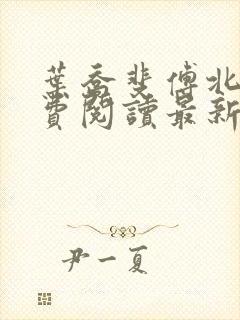 葉喬斐傅北
費閱讀最新
尹一夏